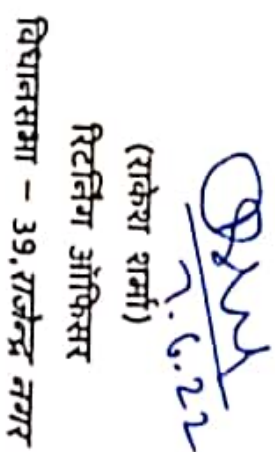 7.6.22
(राकेश शर्मा)
रिटर्निंग ऑफिसर
विधानसभा - 39,राजेन्द्र नगर